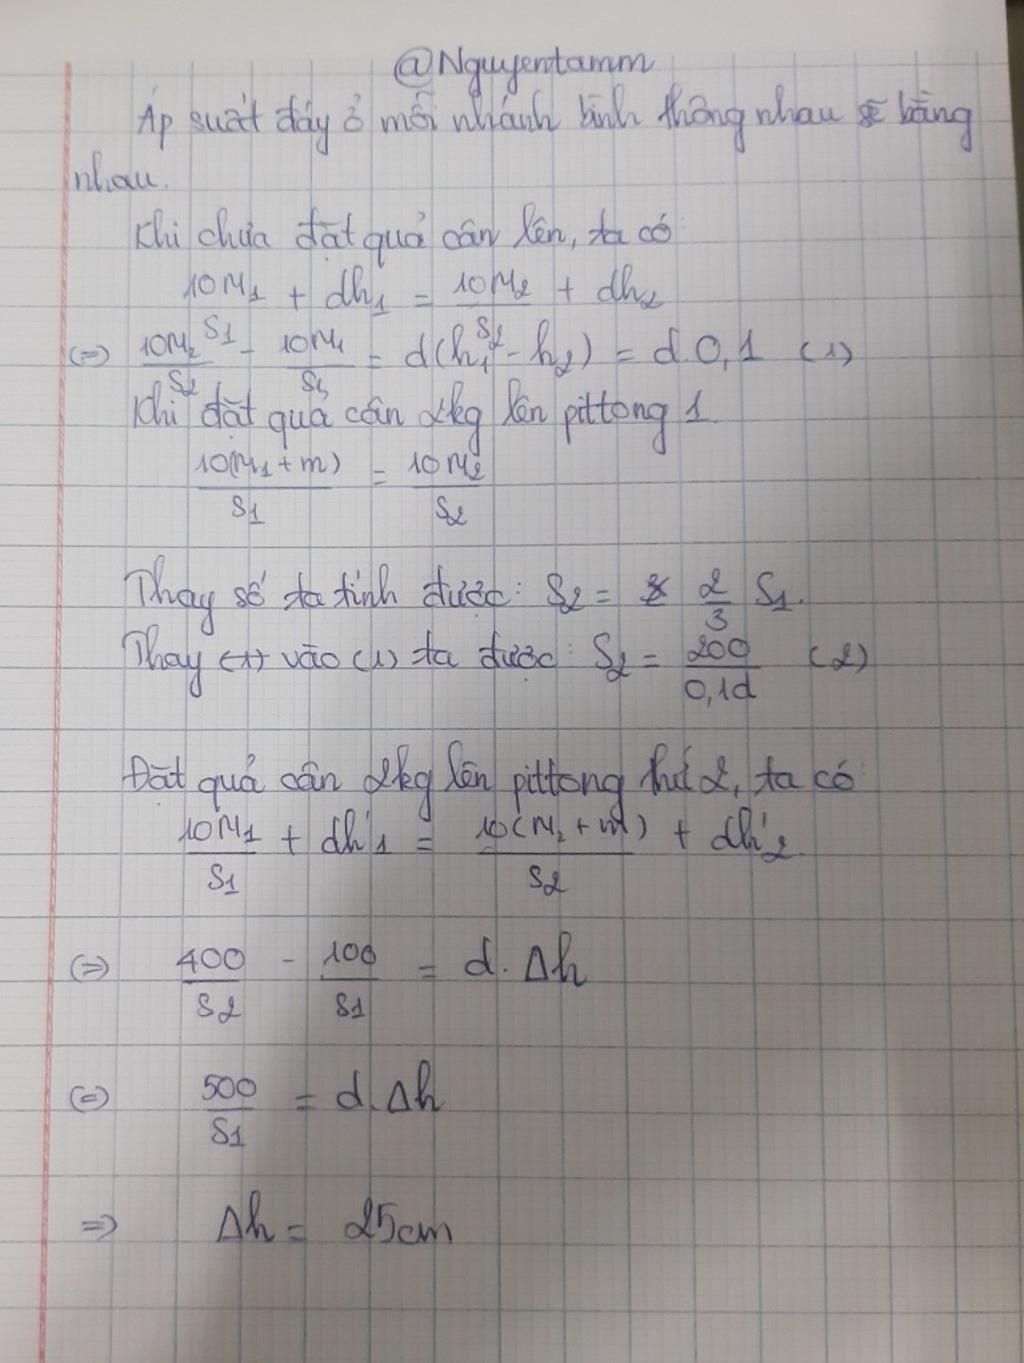 @Nguyentamm
Áp suất đáy ở mỗi nhánh bình thông nhau sẽ bằng
nhau.
Khi chưa đặt quả cân lên, ta có
10M1/S1 + dh1 = 10M2/S2 + dh2
(=) 10M2/S2 - 10M1/S1 = d(h1 - h2) = d 0,1 (1)
Khi đặt quả cân 2kg lên pittong 1
10(M1 + m)/S1 = 10M2/S2
Thay số ta tính được: S2 = 2/3 S1.
Thay (1) vào (1) ta được: S2 = 200/0,1d (2)
Đặt quả cân 2kg lên pittong thứ 2, ta có
10M1/S1 + dh'1 = 10(M2 + m)/S2 + dh'2
(=) 400/S2 - 100/S1 = d. Δh
(=) 500/S1 = d.Δh
=) Δh = 25cm